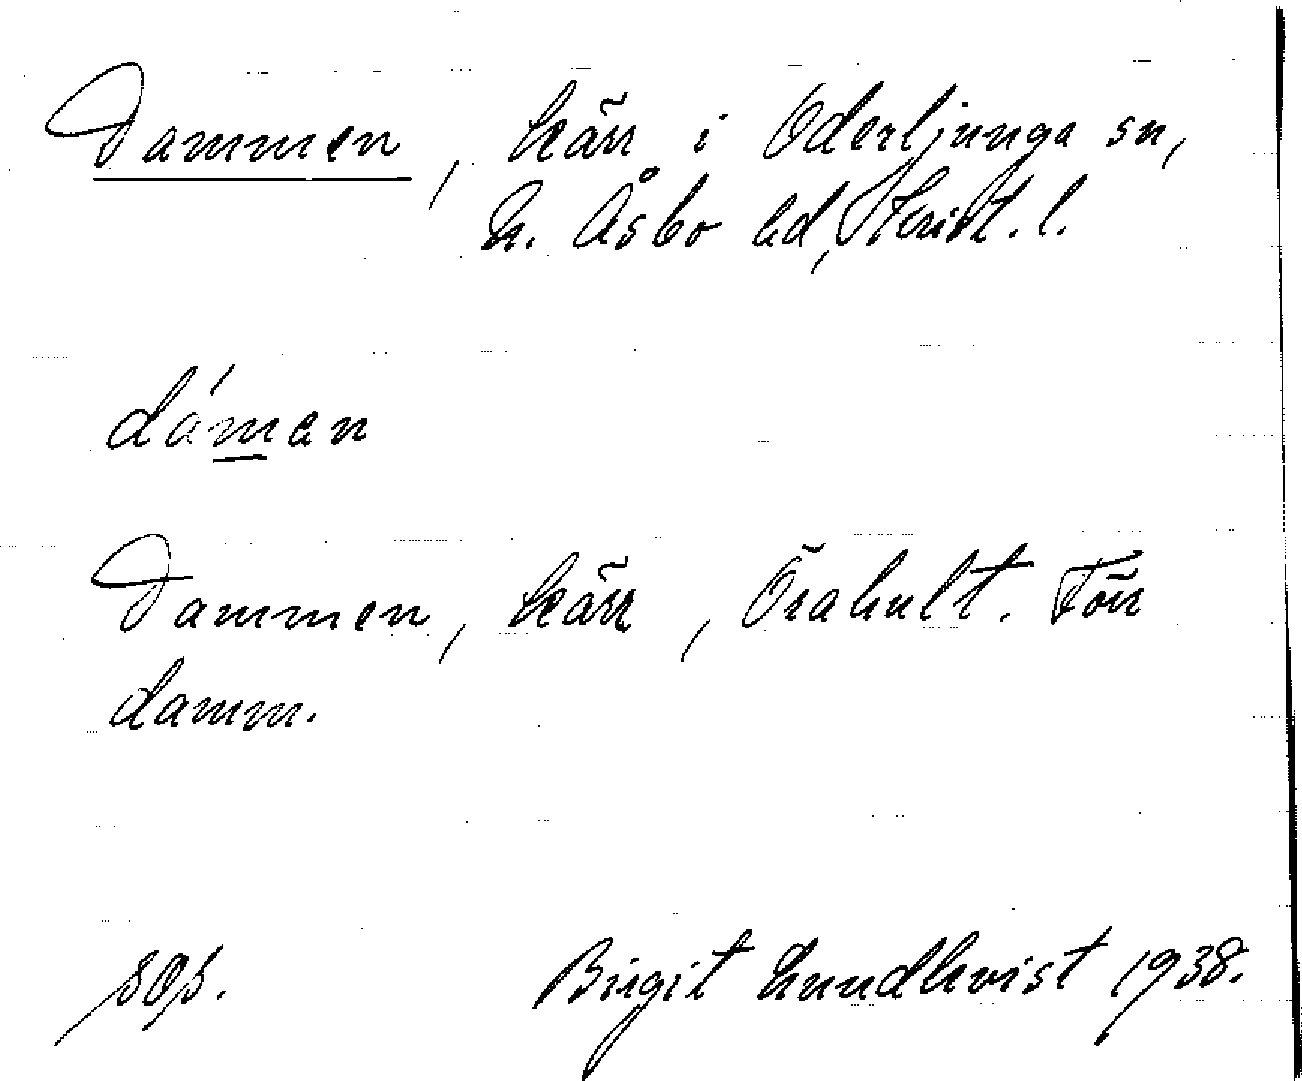 Dammen, kärr i Oderljunga sn,
N. Åsbo hd, Krist. l.
dámen
Dammen, kärr, Örahult. Förr
damm.
Birgit Lundkvist 1938.